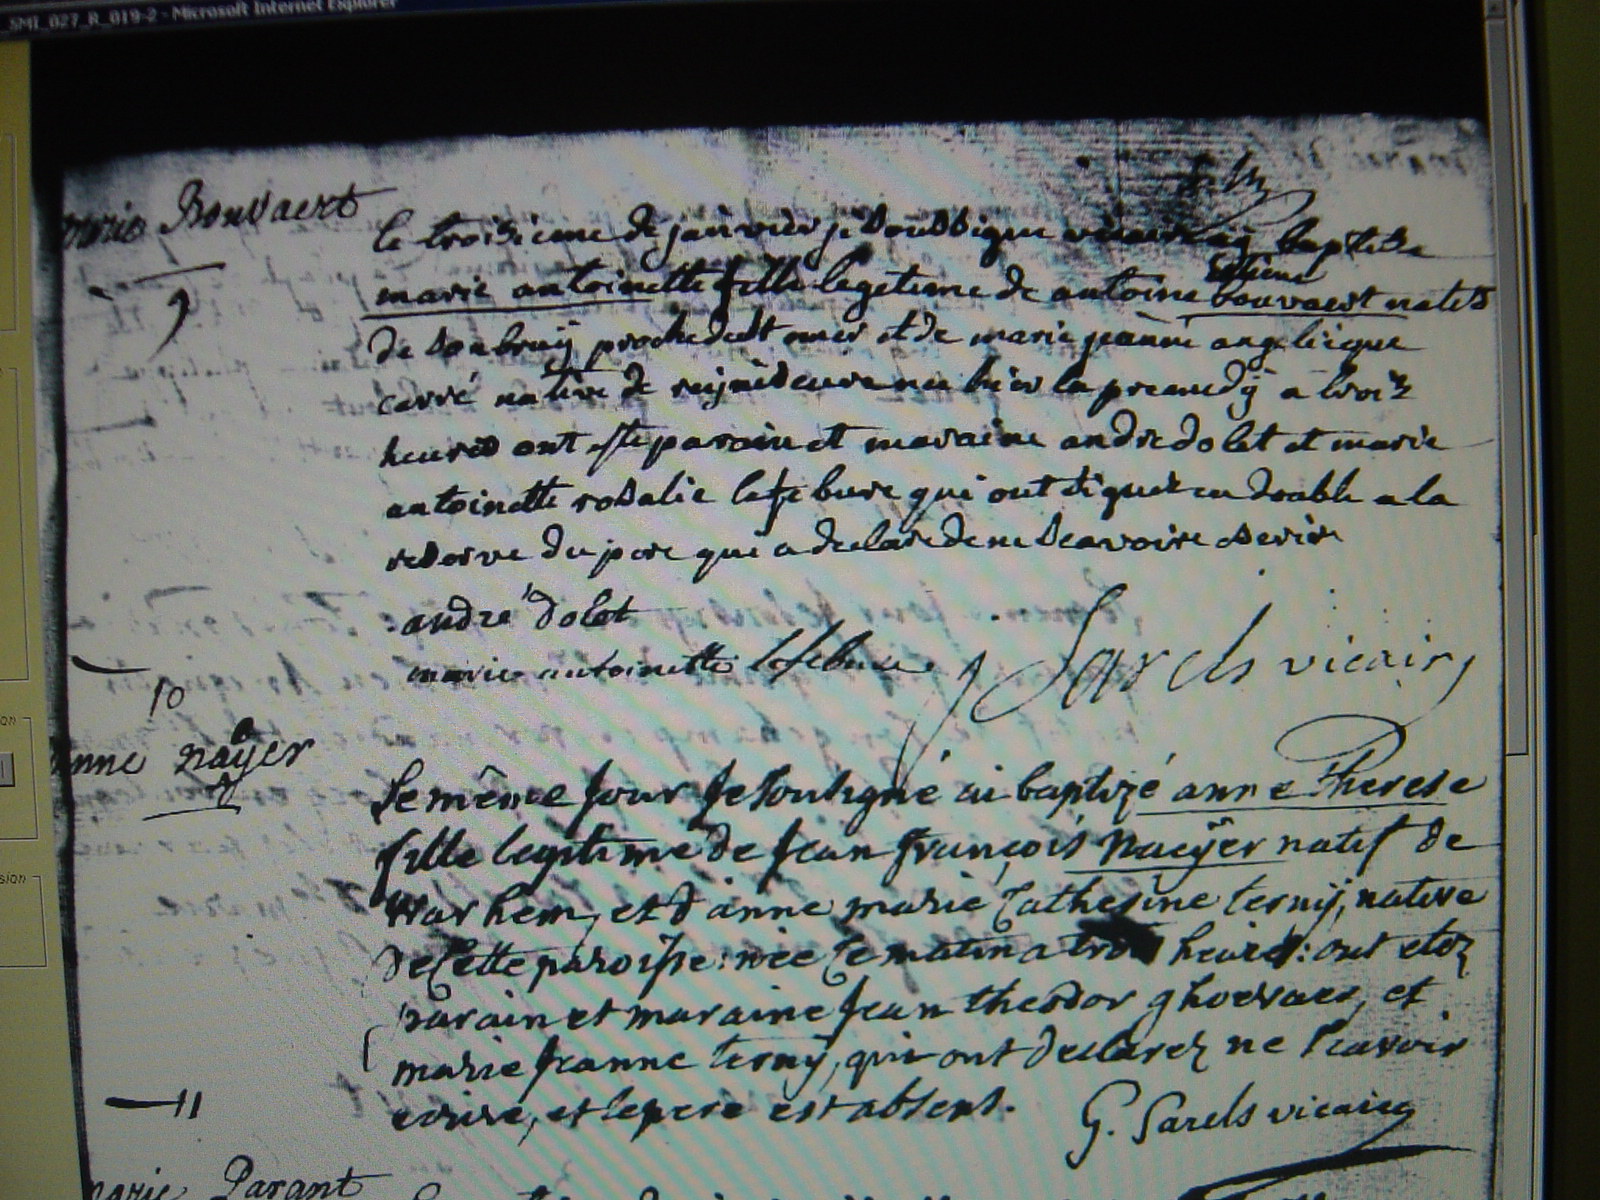 SMI_027_R_019-2 - Microsoft Internet Explorer
marie Bouvaert
le troisieme de janvier je soussigne vicaire ai baptise
9
marie antoinette fille legetime de antoine bouvaert natif
etiene
de proche de st omer et de marie jeanne angelicque
carré native de hier la premedy a troiz
heures ont ete parain et maraine andre dolet et marie
antoinette rosalie lefebure qui ont signez en double a la
reserve du pere qui a declare de ne scavoire escrire
andré dolet
marie antoinette lefebure
Sarels vicaire
10
anne naÿer
le même jour je soussigné ai baptizé anne Therese
fille legitime de jean françois naeÿer natif de
Warhem, et d'anne marie Catherine ternÿ, native
de cette paroisse: née ce matin a trois heures: ont etez
parain et maraine jean theodor ghoevaer, et
marie jeanne ternÿ, qui ont declarez ne scavoir
ecrire, et le pere est absent.
G. Sarels vicaire
11
marie Parant